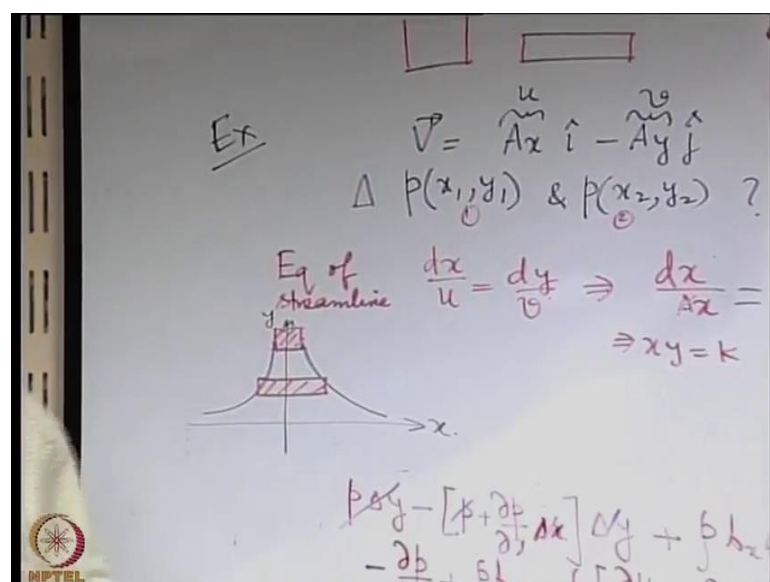 Ex V⃗ = Ax î − Ay ĵ
u v
Δ p(x₁, y₁) & p(x₂, y₂) ?
① ②
Eq of streamline dx/u = dy/v ⇒ dx/Ax =
⇒ xy = k
y
x.
pΔy − [p + ∂p/∂x Δx] Δy + ρ bₓ
− ∂p
NPTEL